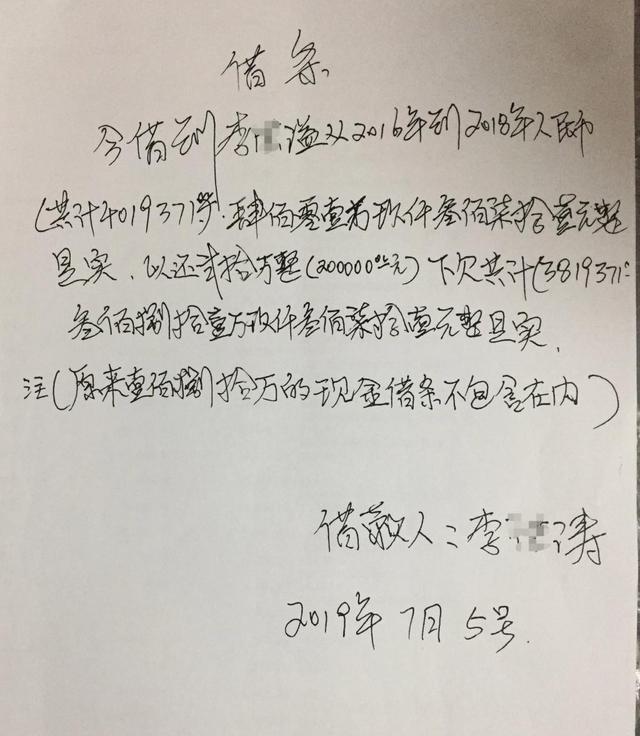 借条
今借到李溢从2016年到2018年人民币
(共计4019371.00.肆佰零壹万玖仟叁佰柒拾壹元整
是实.以还贰拾万整(200000.00元)下欠共计(3819371元
叁佰捌拾壹万玖仟叁佰柒拾壹元整是实.
注(原来壹佰捌拾万的现金借条不包含在内)
借款人:李涛
2019年7月5号.